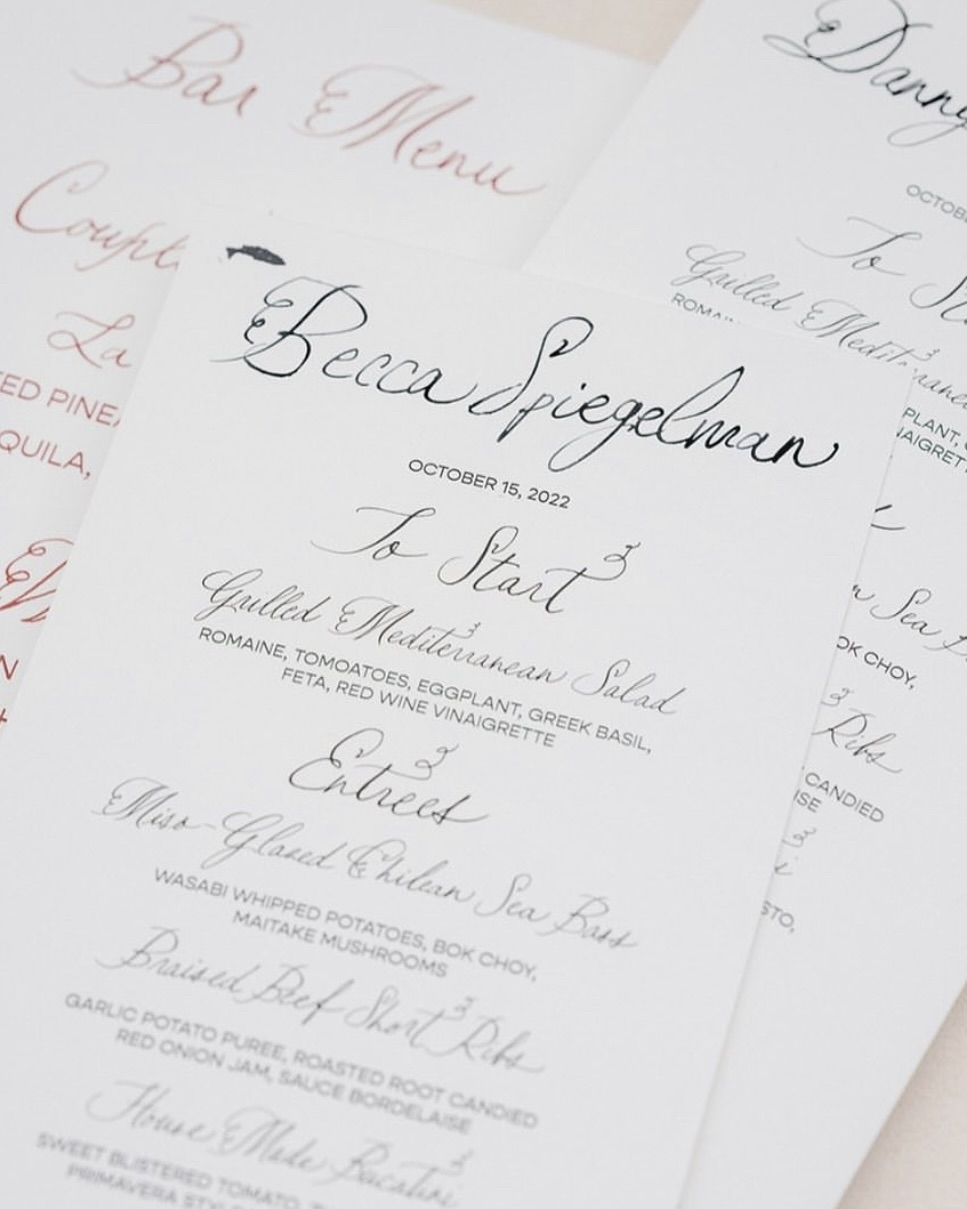 Bar Menu
La
QUILA,
Danny
To
Grilled
PLANT,
Sea
OK CHOY,
Ribs
CANDIED
Becca Spiegelman
OCTOBER 15, 2022
To Start
Grilled Mediterranean Salad
ROMAINE, TOMOATOES, EGGPLANT, GREEK BASIL,
FETA, RED WINE VINAIGRETTE
Entrees
Miso-Glazed Chilean Sea Bass
WASABI WHIPPED POTATOES, BOK CHOY,
MAITAKE MUSHROOMS
Braised Beef Short Ribs
GARLIC POTATO PUREE, ROASTED ROOT CANDIED
RED ONION JAM, SAUCE BORDELAISE
House Made Bucatini
SWEET BLISTERED TOMATO,
PRIMAVERA